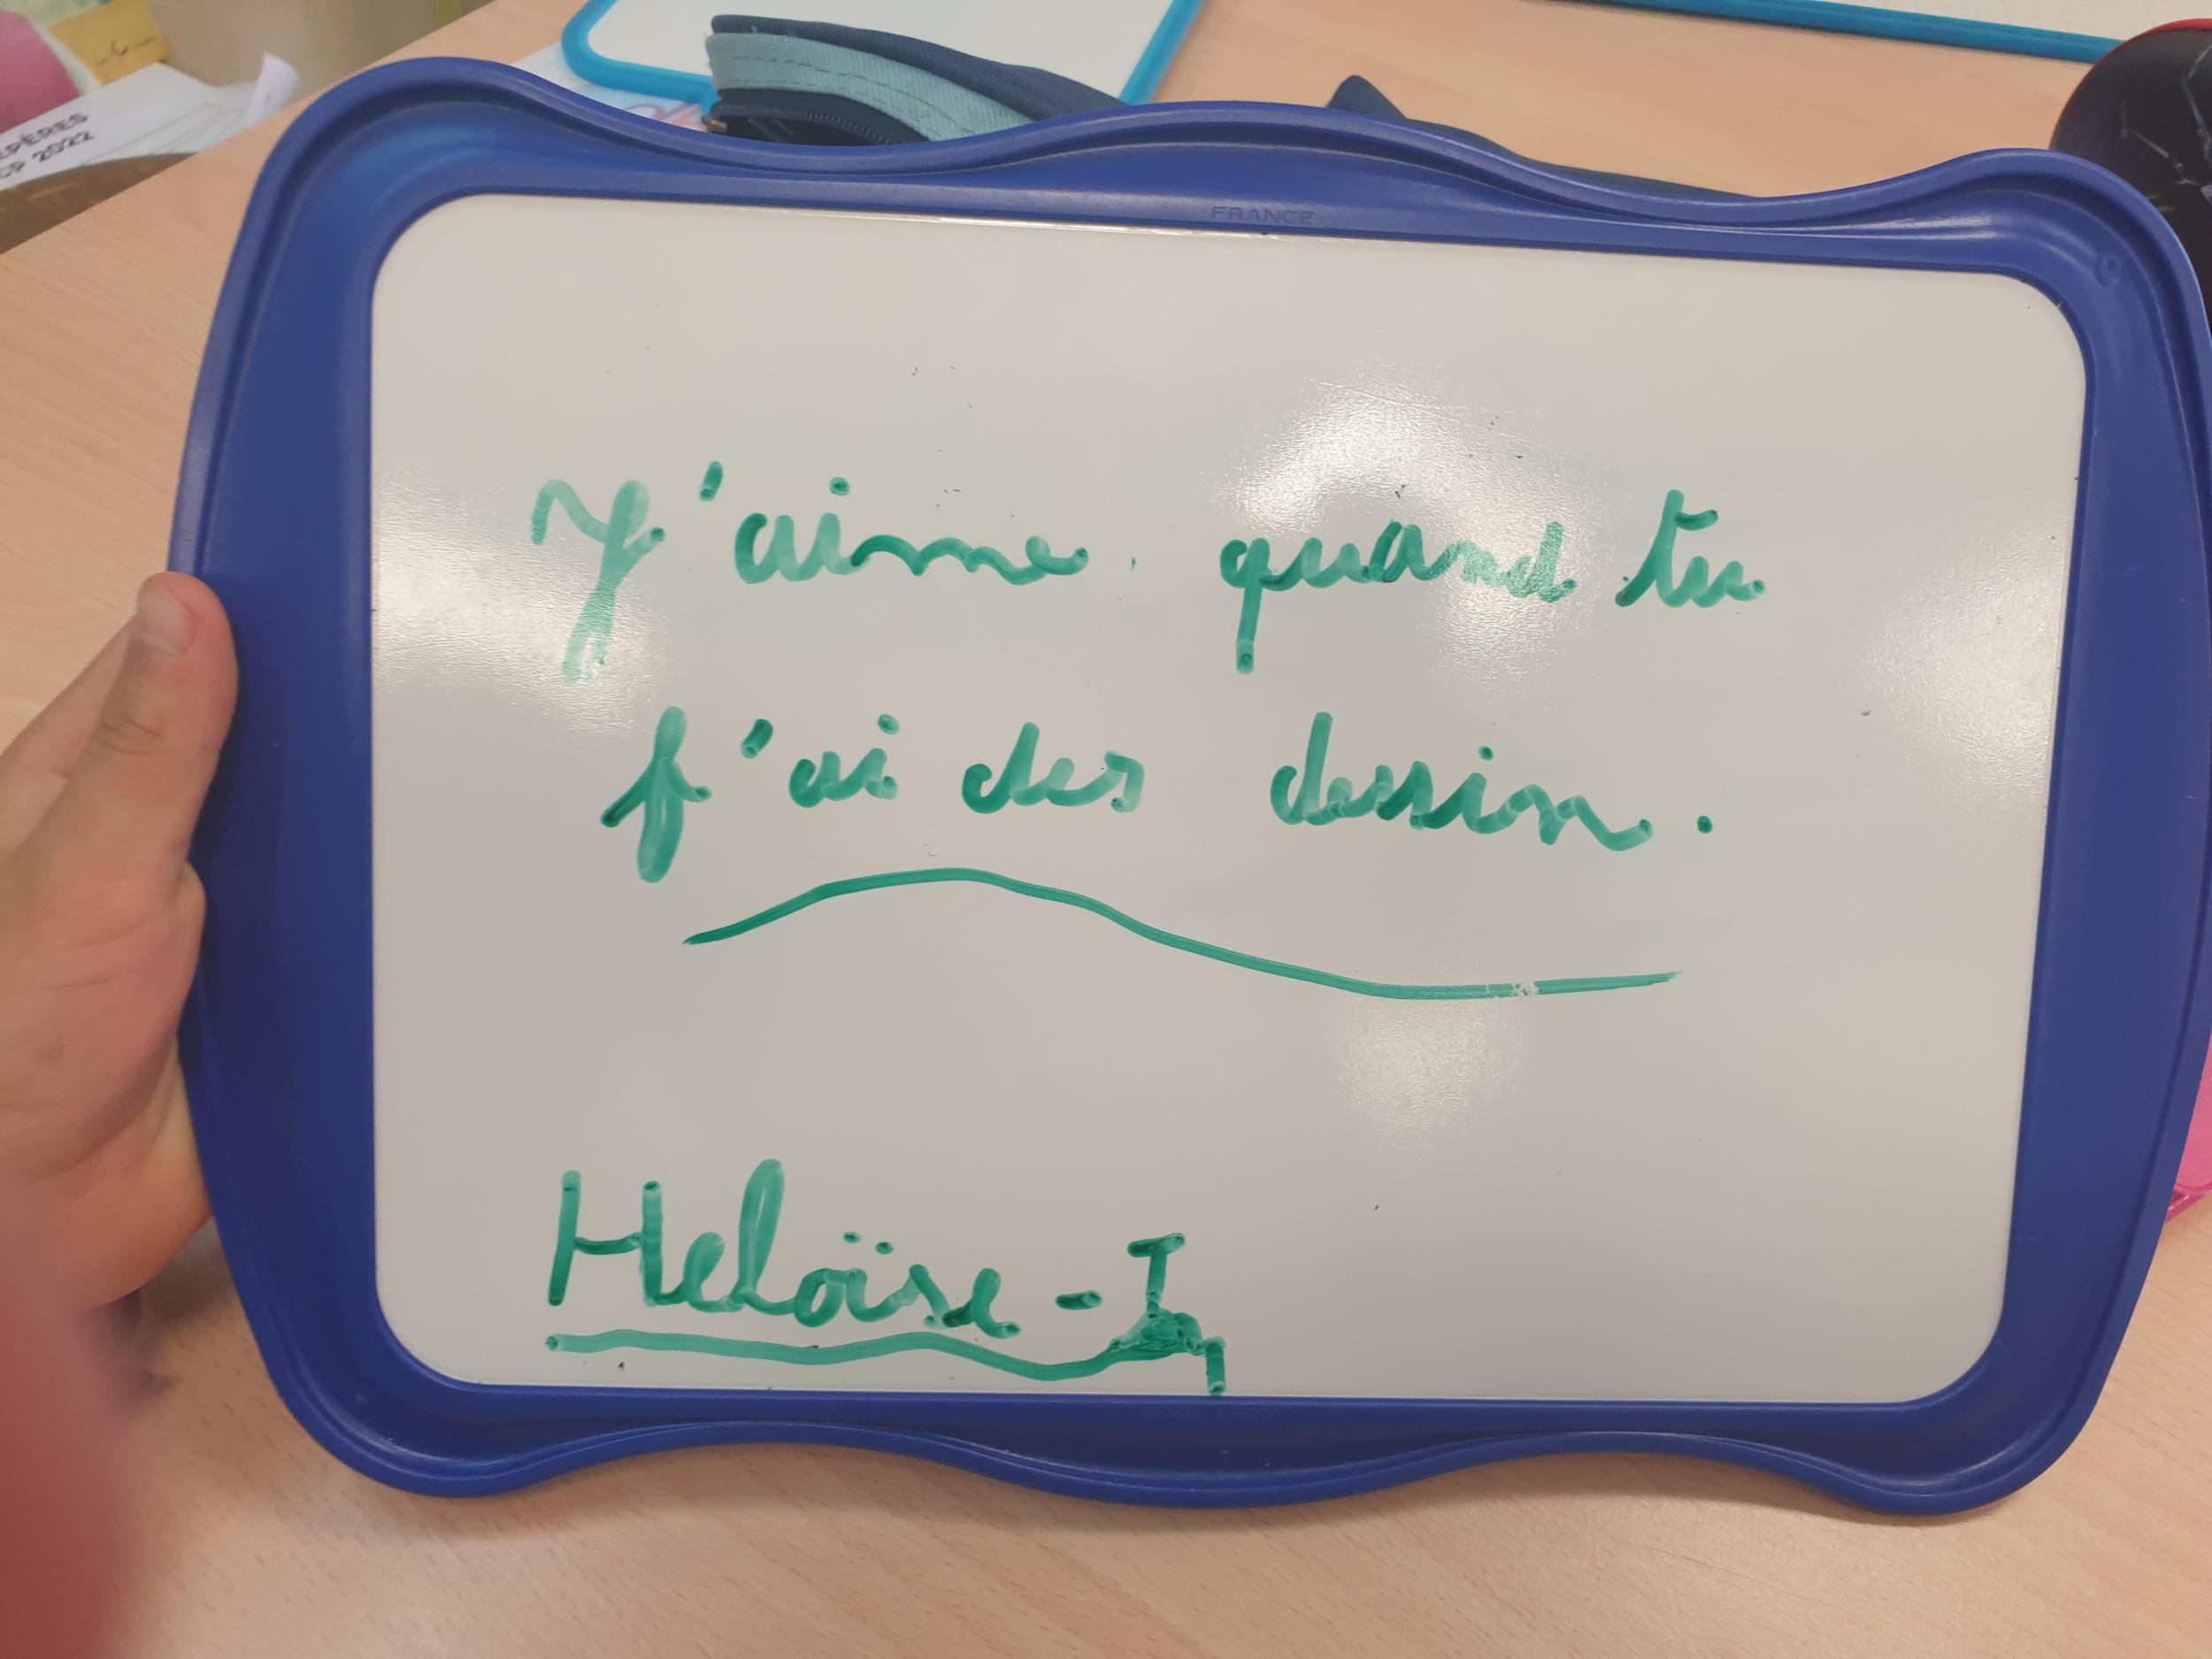 EPÈRES
CP 2022
FRANCE
J'aime quand tu
f'ai des dessin.
Heloïse-I